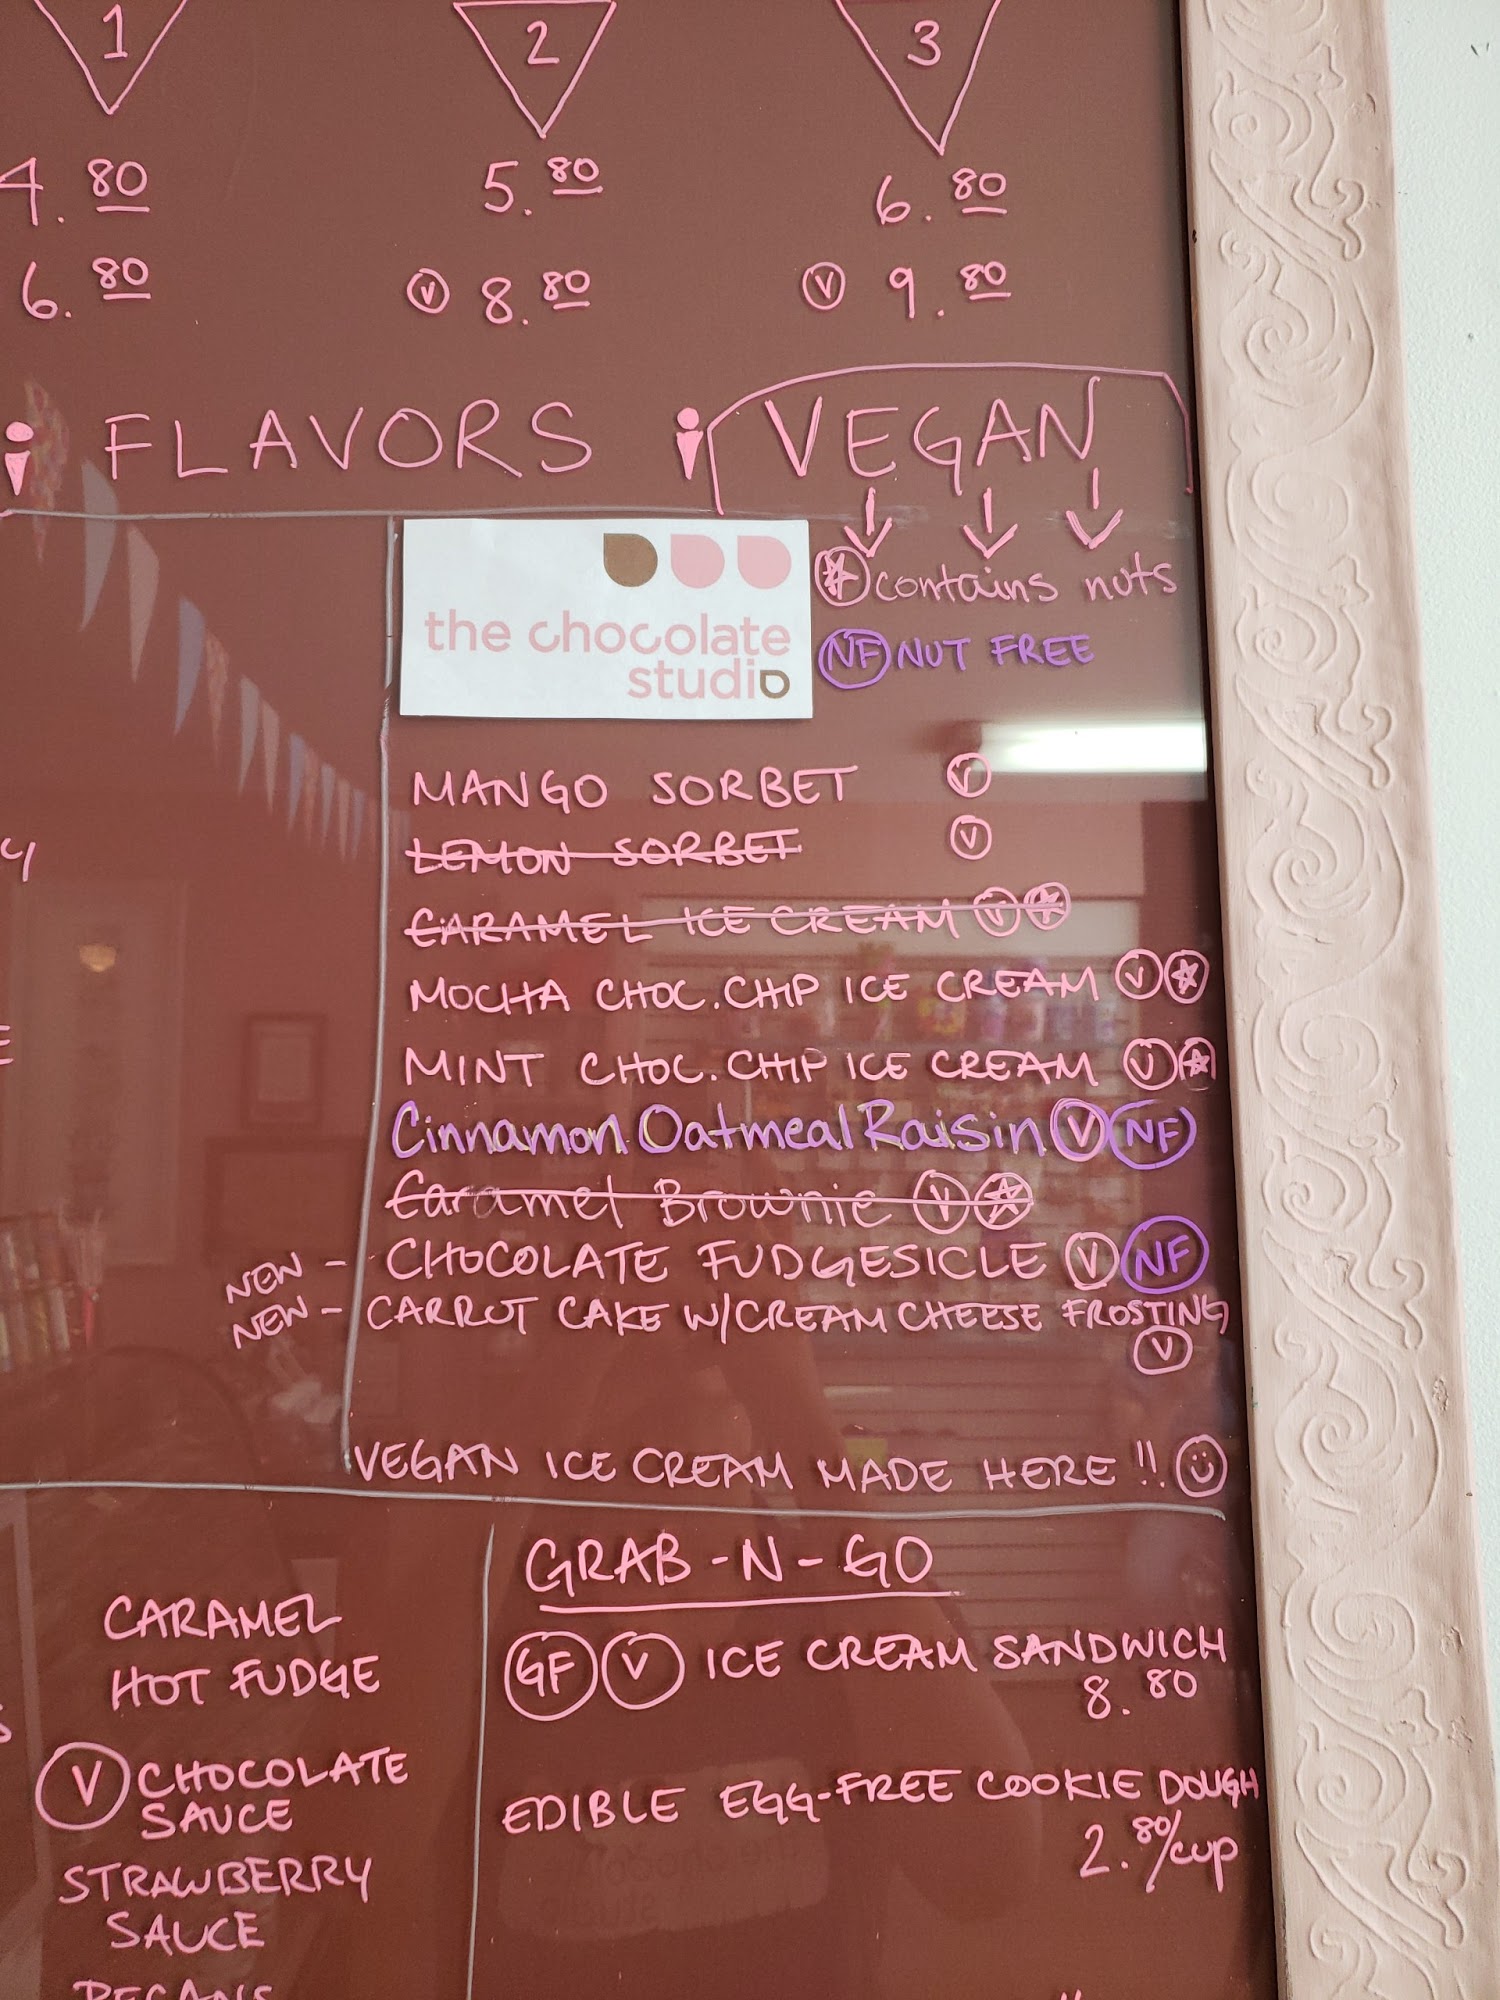 1 2 3
4.80 5.80 6.80
6.80 V 8.80 V 9.80
FLAVORS VEGAN
the chocolate
studio
contains nuts
NF NUT FREE
MANGO SORBET V
LEMON SORBET V
CARAMEL ICE CREAM V
MOCHA CHOC. CHIP ICE CREAM V
MINT CHOC. CHIP ICE CREAM V
Cinnamon Oatmeal Raisin V NF
Caramel Brownie V
NEW - CHOCOLATE FUDGESICLE V NF
NEW - CARROT CAKE W/CREAM CHEESE FROSTING
V
VEGAN ICE CREAM MADE HERE!!
CARAMEL
HOT FUDGE
V CHOCOLATE
SAUCE
STRAWBERRY
SAUCE
PECANS
GRAB-N-GO
GF V ICE CREAM SANDWICH
8.80
EDIBLE EGG-FREE COOKIE DOUGH
2.80/cup